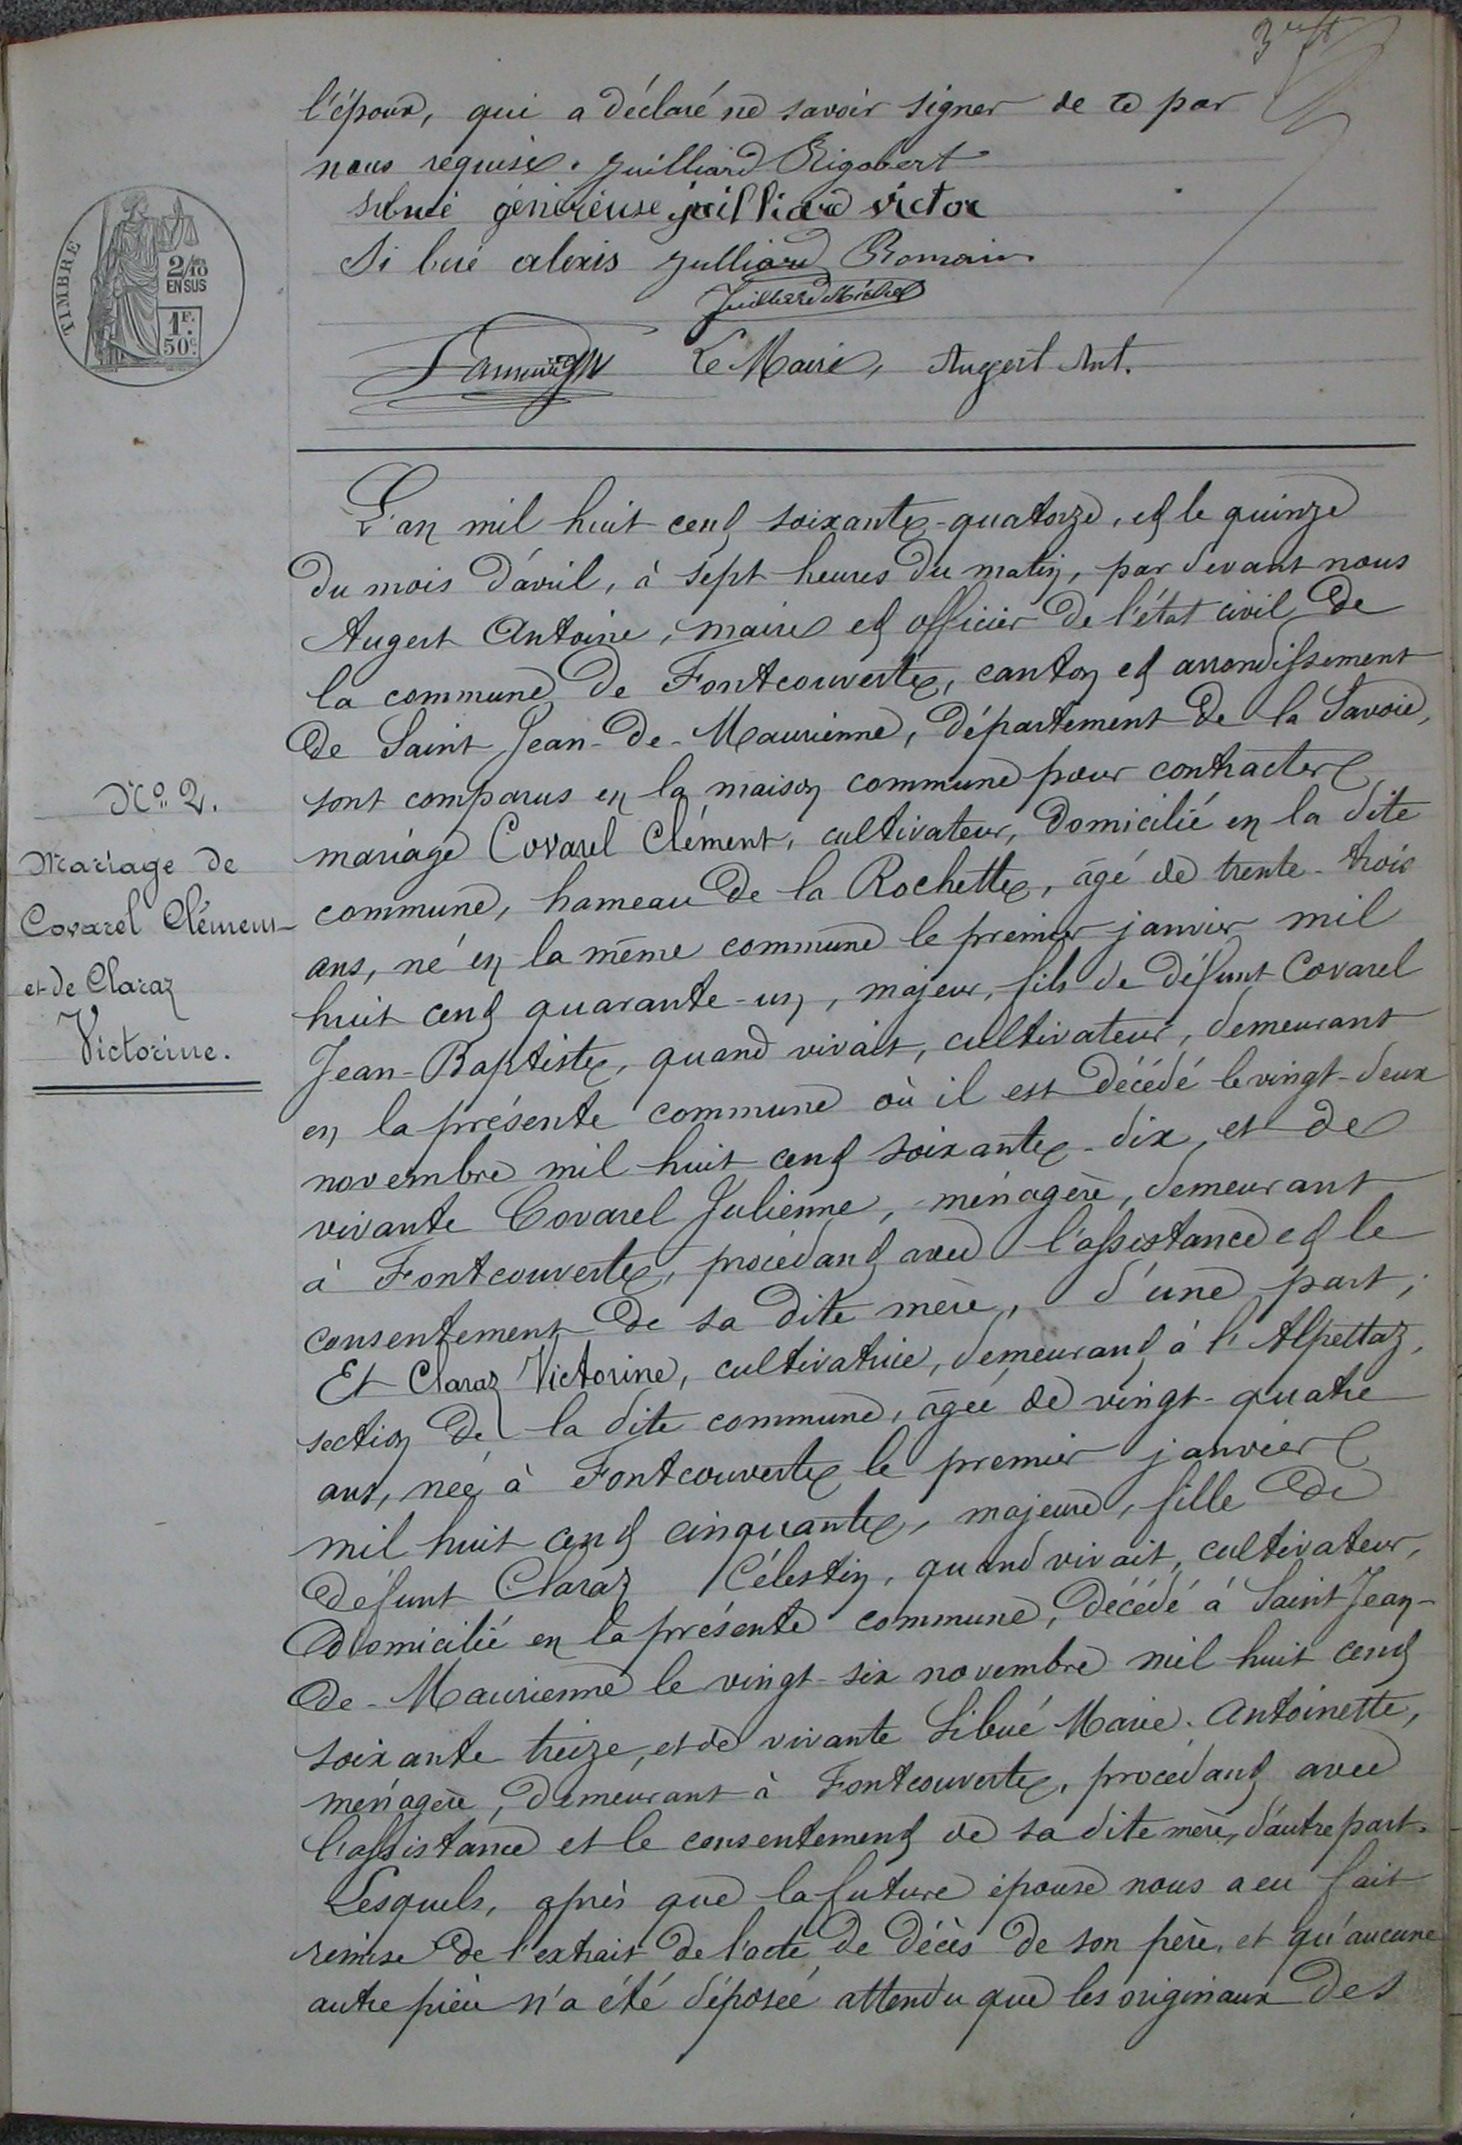 l'époux, qui a déclaré ne savoir signer de ce par
nous requise. Juilliard Rigobert
Sibué généreuse juilliard victor
Si bué alexis Julliard Romain
Juilliard Michel
Le Maire, Augert Ant.
TIMBRE
2/10
EN SUS
1F.
50c.
L'an mil huit cent soixante-quatorze, et le quinze
du mois d'avril, à sept heures du matin, par devant nous
Augert Antoine, maire et officier de l'état civil de
la commune de Fontcouverte, canton et arrondissement
de Saint-Jean-de-Maurienne, département de la Savoie,
sont comparus en la maison commune pour contracter
mariage Covarel Clément, cultivateur, domicilié en la dite
commune, hameau de la Rochette, âgé de trente-trois
ans, né en la même commune le premier janvier mil
huit cent quarante-un, majeur, fils de défunt Covarel
Jean-Baptiste, quand vivait, cultivateur, demeurant
en la présente commune où il est décédé le vingt-deux
novembre mil huit cent soixante-dix, et de
vivante Covarel Julienne, ménagère, demeurant
à Fontcouverte, procédant avec l'assistance et le
consentement de sa dite mère, d'une part;
Et Claraz Victorine, cultivatrice, demeurant à l'Alpettaz,
section de la dite commune, âgée de vingt-quatre
ans, née à Fontcouverte le premier janvier
mil huit cent cinquante, majeure, fille de
défunt Claraz Célestin, quand vivait, cultivateur,
domicilié en la présente commune, décédé à Saint Jean-
de-Maurienne le vingt-six novembre mil huit cent
soixante treize, et de vivante Sibué Marie-Antoinette,
ménagère, demeurant à Fontcouverte, procédant avec
l'assistance et le consentement de sa dite mère, d'autre part.
Lesquels, après que la future épouse nous a eu fait
remise de l'extrait de l'acte de décès de son père, et qu'aucune
autre pièce n'a été déposée attendu que les originaux des
No. 2.
Mariage de
Covarel Clément
et de Claraz
Victorine.